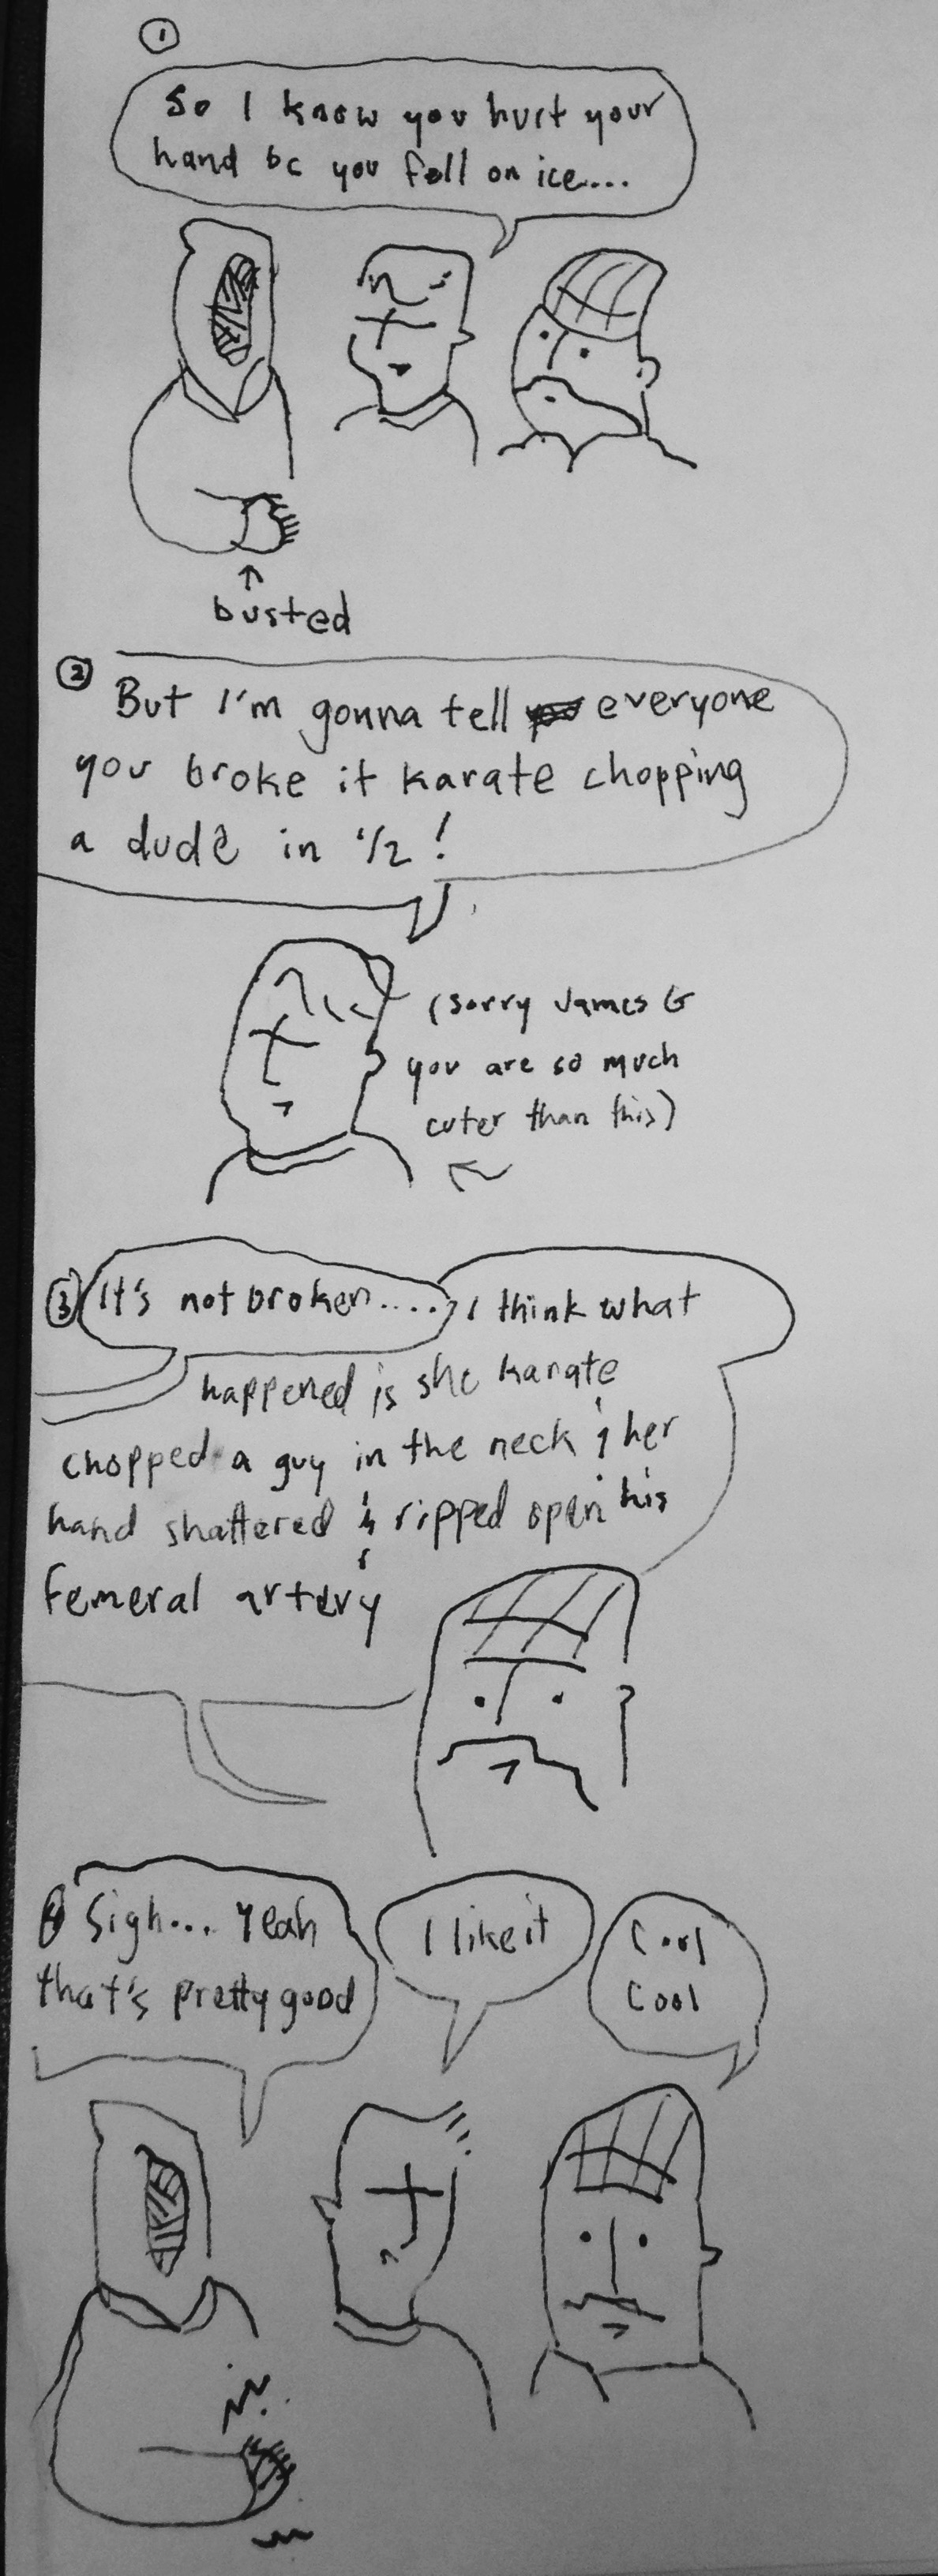 1
So I know you hurt your
hand bc you fell on ice....
busted
2
But I'm gonna tell everyone
you broke it karate chopping
a dude in 1/2!
(sorry James G
you are so much
cuter than this)
3
It's not broken....
I think what
happened is she karate
chopped a guy in the neck & her
hand shattered & ripped open his
femeral artery
4
Sigh... Yeah
that's pretty good
I like it
Cool
Cool